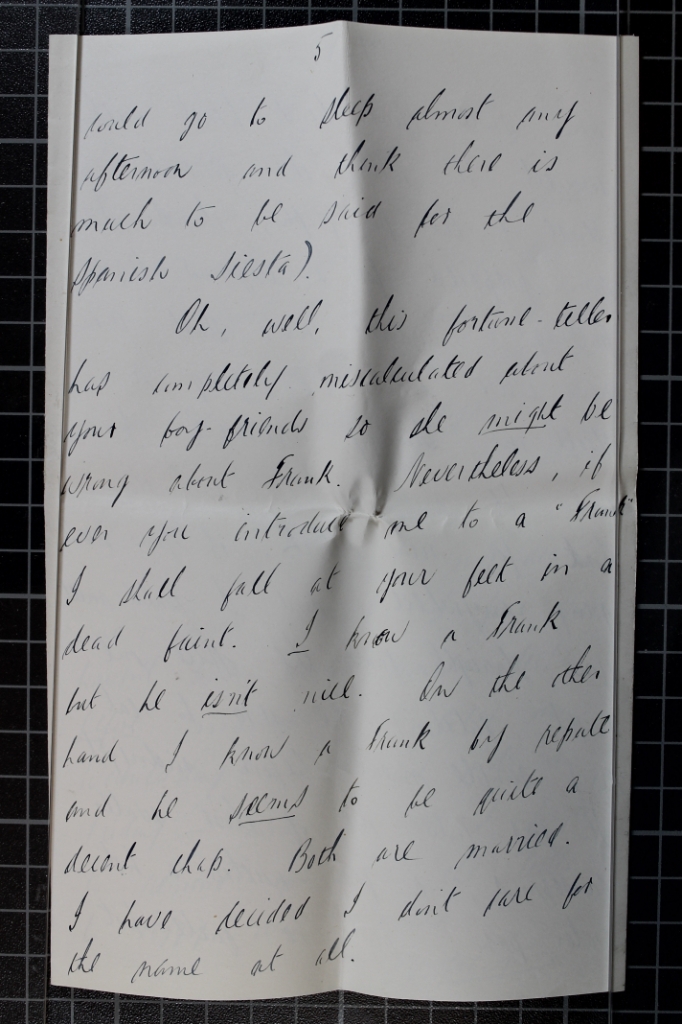 5
could go to sleep almost any
afternoon and think there is
much to be said for the
Spanish Siesta).
Oh, well, this fortune-teller
has completely miscalculated about
your boy-friends so she might be
wrong about Frank. Nevertheless, if
ever you introduce me to a "Frank"
I shall fall at your feet in a
dead faint. I know a Frank
but he isn't nice. On the other
hand I know a Frank by repute
and he seems to be quite a
decent chap. Both are married.
I have decided I don't care for
the name at all.